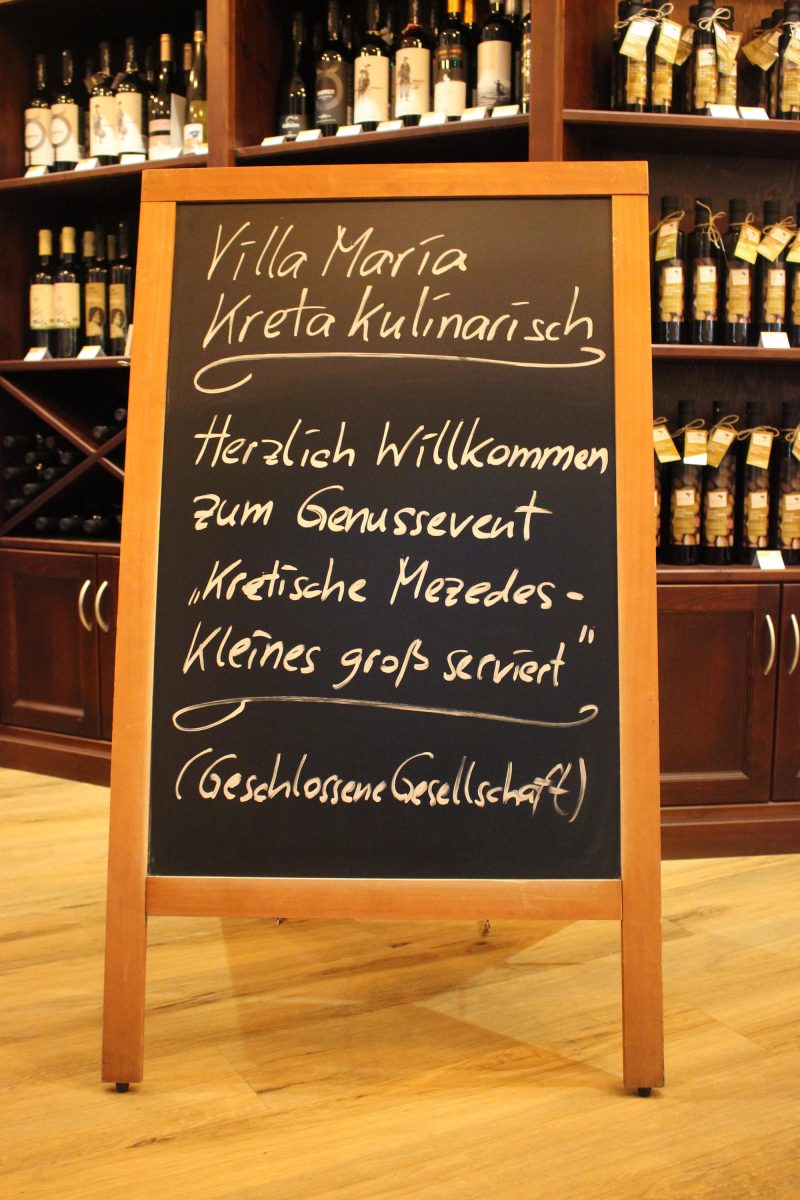 Villa Maria
Kreta Kulinarisch
Herzlich Willkommen
zum Genussevent
„Kretische Mezedes-
Kleines groß serviert"
(Geschlossene Gesellschaft)